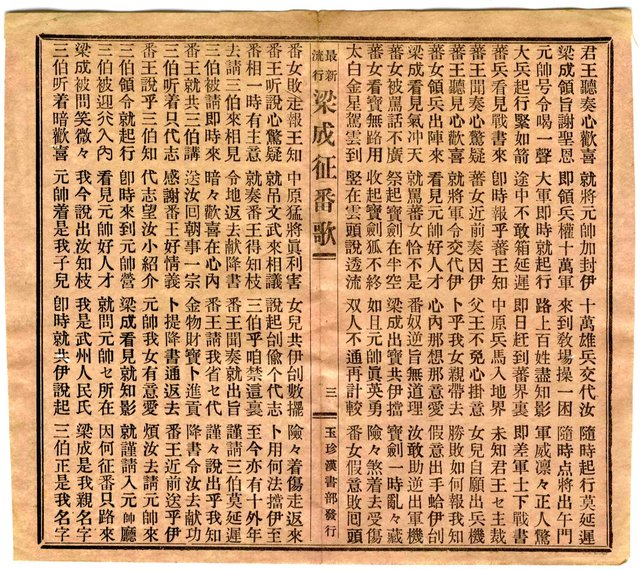 君王聽奏心歡喜 就將元帥加封伊 十萬雄兵交代汝 隨時起行莫延遲
梁成領旨謝聖恩 即領兵權十萬軍 來到敎場操一困 隨時點將出午門
元帥号令喝一聲 大軍即時就起行 路上百姓盡知影 軍威凜々正人驚
大兵起行緊如箭 途中不敢箱延遲 即日赶到蕃界裏 即差軍士下戰書
蕃兵看見戰書來 即時報乎蕃王知 中原兵馬入地界 未知君王セ主裁
蕃王聞奏心驚疑 蕃女近前奏因伊 父王不免心掛意 女兒自願出兵機
蕃王聽見心歡喜 就將軍令交代伊 卜乎我女親帶去 勝敗如何報我知
蕃女領兵出陣來 看見元帥好人才 心內那想那意愛 假意出手蛤伊刣
梁成看見氣冲天 就罵蕃女恰不是 番奴逆旨無道理 汝敢助逆出軍機
蕃女被罵話不廣 祭起寶劍在半空 梁成出寶共伊擋 寶劍一時亂々藏
蕃女看寶無路用 收起寶劍狐不終 如且元帥眞英勇 險々煞着去受傷
太白金星駕雲到 竪在雲頭說透流 双人不通再計較 番女假意敗囘頭
最新流行 梁成征番歌 三 玉珍漢書部發行
番女敗走報王知 中原猛將眞利害 女兒共伊刣數擺 險々着傷走返來
番王听說心驚疑 就吊文武來相議 說起刣偷个代志 卜用何法擋伊至
番相一時有主意 就奏番王得知機 三伯乎咱禁這裏 至今亦有十外年
去請三伯來相見 令地返去献降書 番王聞奏就出旨 謹請三伯莫延遲
三伯被請即時來 暗々歡喜在心內 番王請我省セ代 謹々說出乎我知
番王就共三伯講 送汝回朝事一宗 金物財寶卜進貢 降書令汝去献功
三伯听着只代志 感謝番王好情義 卜提降書通返去 番王近前送乎伊
番王說乎三伯知 代志望汝小紹介 元帥我女有意愛 煩汝去請元帥來
三伯領令就起行 卽時來到元帥營 梁成看見就知影 就請謹入元帥廳
三伯被迎入內 看見元帥好人才 就問元帥セ所在 因何征番只路來
梁成被問笑微々 我今說出汝知枝 我是武州人民氏 梁成是我親名字
三伯听着暗歡喜 元帥着是我子兒 卽時就共伊說起 三伯正是我名字